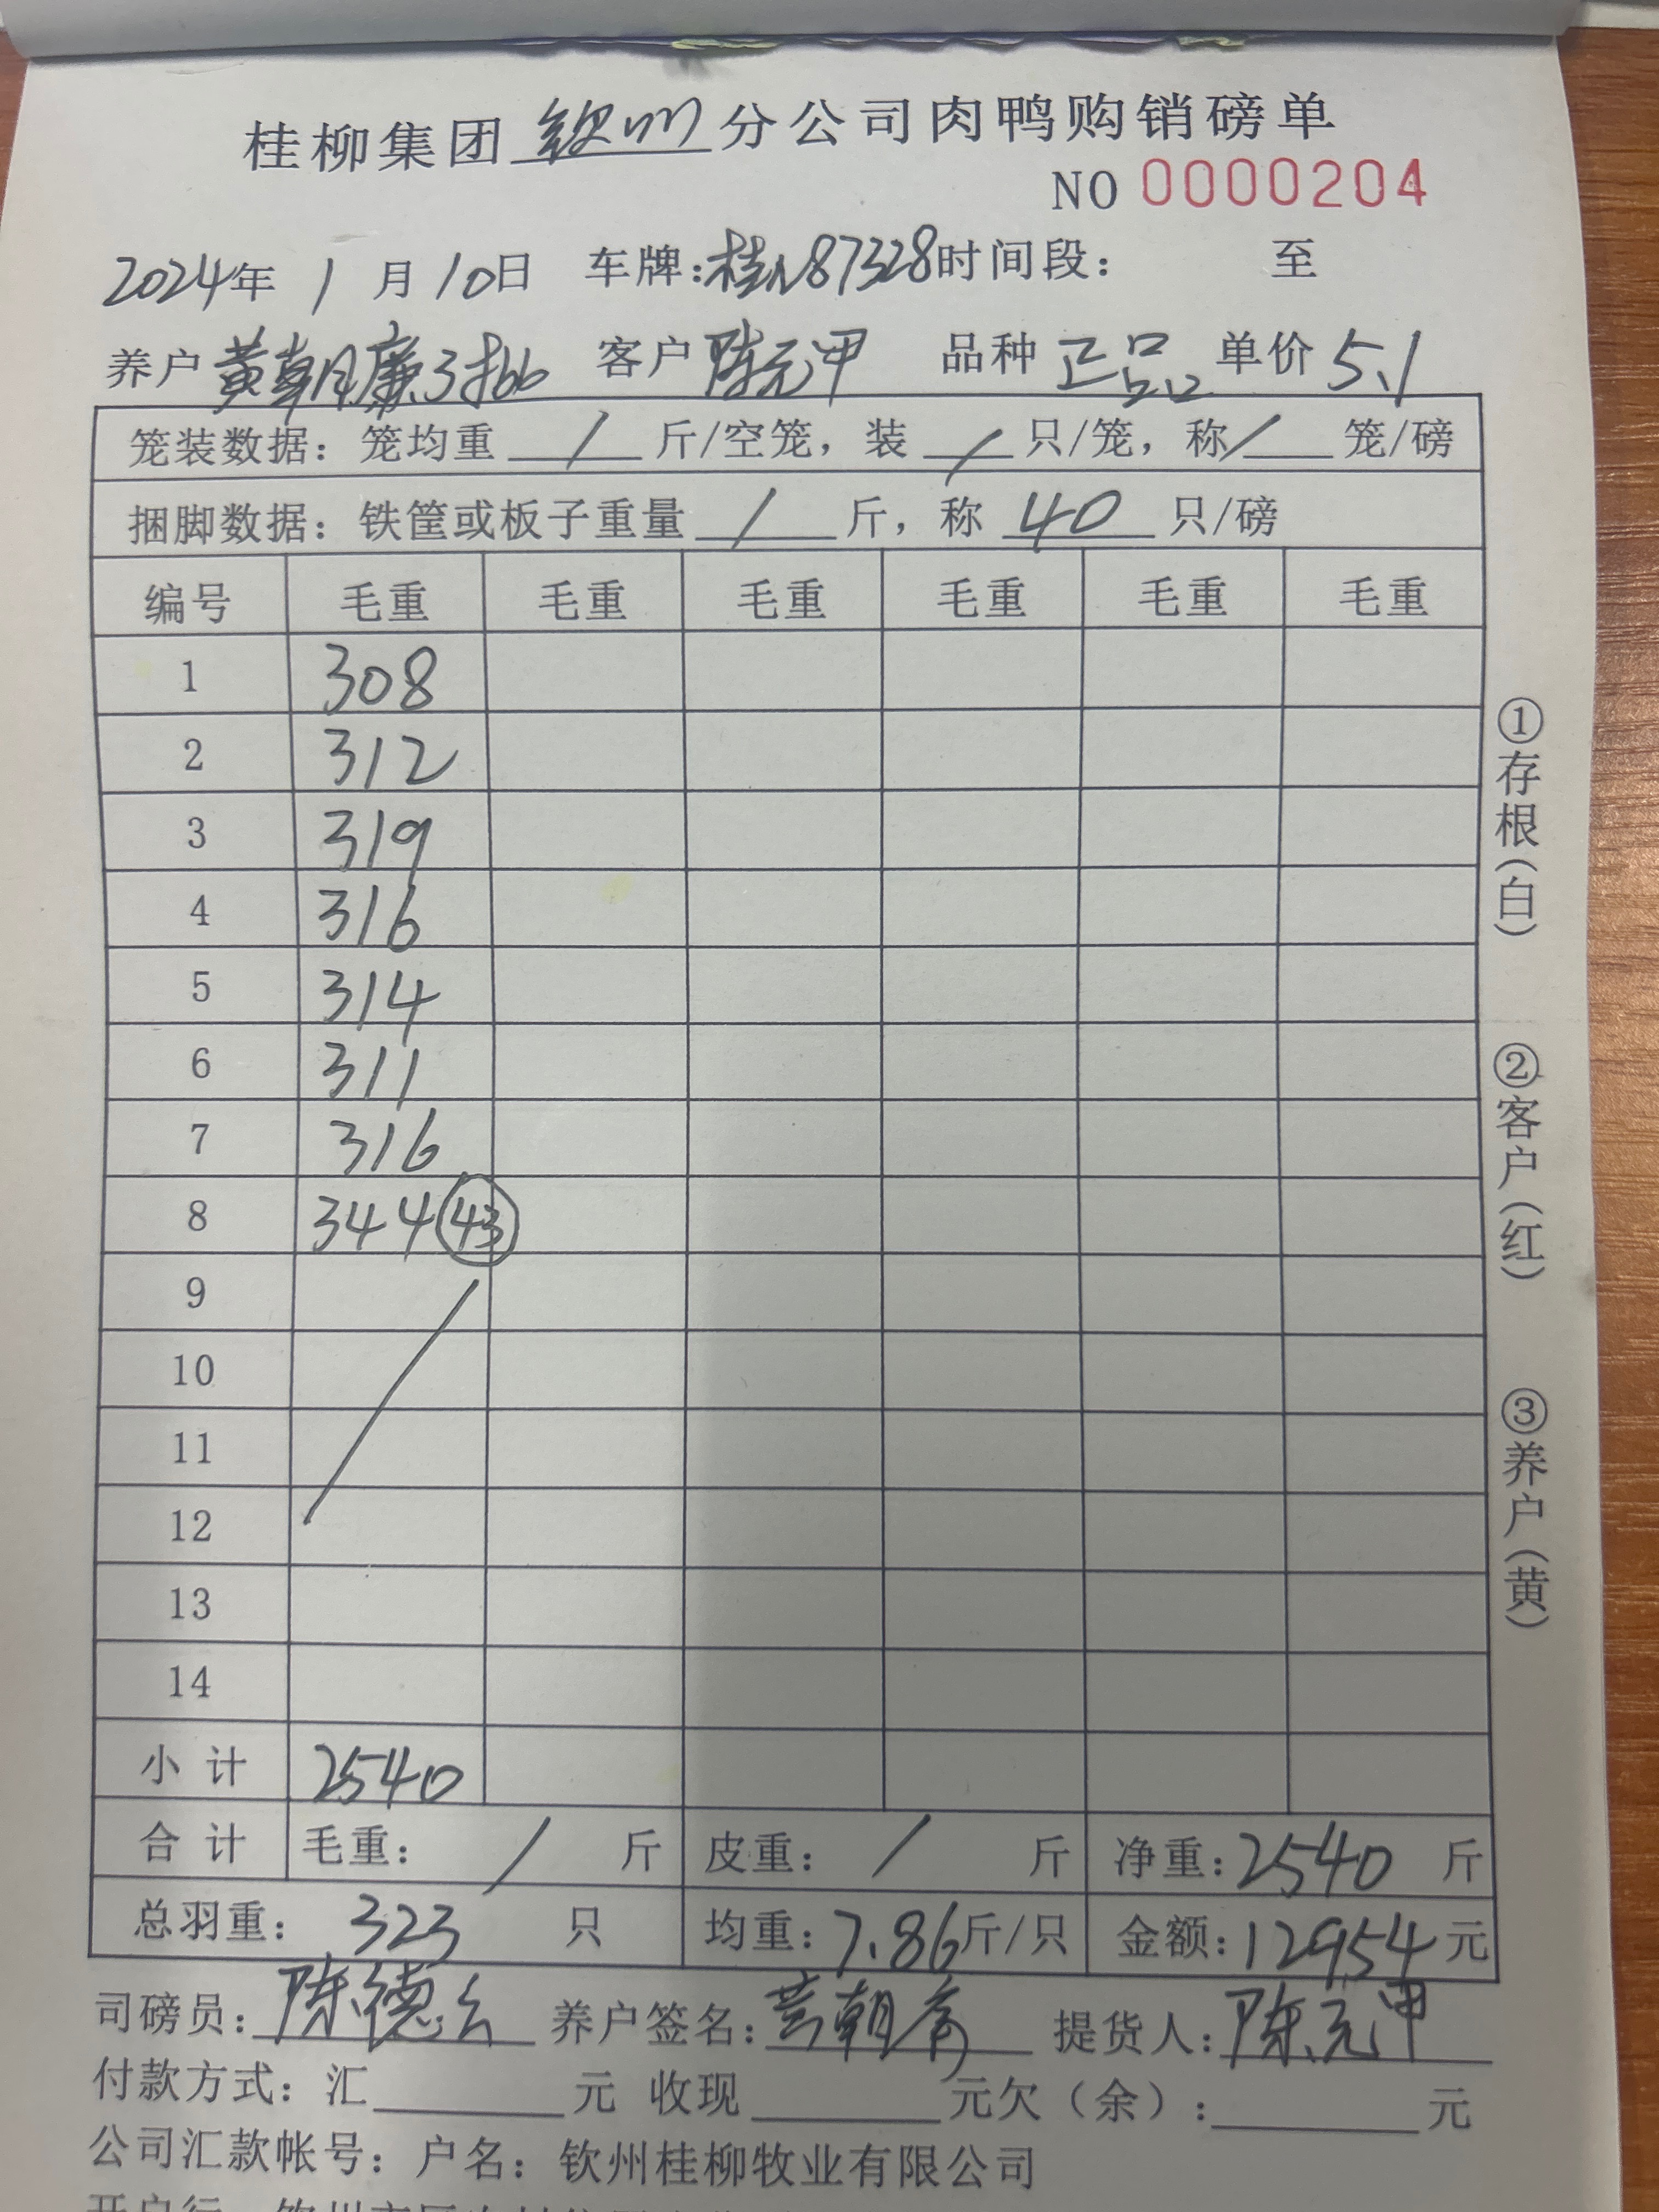 桂柳集团 钦州 分公司肉鸭购销磅单
NO 0000204
2024年 1 月 10日 车牌:桂N87328时间段: 至
养户 黄朝廉3批 客户 陈元甲 品种 正品 单价 5.1
笼装数据: 笼均重 / 斤/空笼, 装 / 只/笼, 称 / 笼/磅
捆脚数据: 铁筐或板子重量 / 斤, 称 40 只/磅
编号 毛重 毛重 毛重 毛重 毛重 毛重
1 308
2 312
3 319
4 316
5 314
6 311
7 316
8 344 43
9
10
11
12
13
14
小计 2540
合计 毛重: / 斤 皮重: / 斤 净重: 2540 斤
总羽重: 323 只 均重: 7.86斤/只 金额: 12954元
司磅员: 陈德 养户签名: 黄朝 提货人: 陈元甲
付款方式: 汇 元 收现 元欠(余): 元
公司汇款帐号: 户名: 钦州桂柳牧业有限公司
①存根(白)
②客户(红)
③养户(黄)